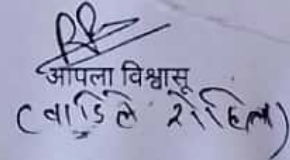 आपला विश्वासू
(वाडिले रोहित)